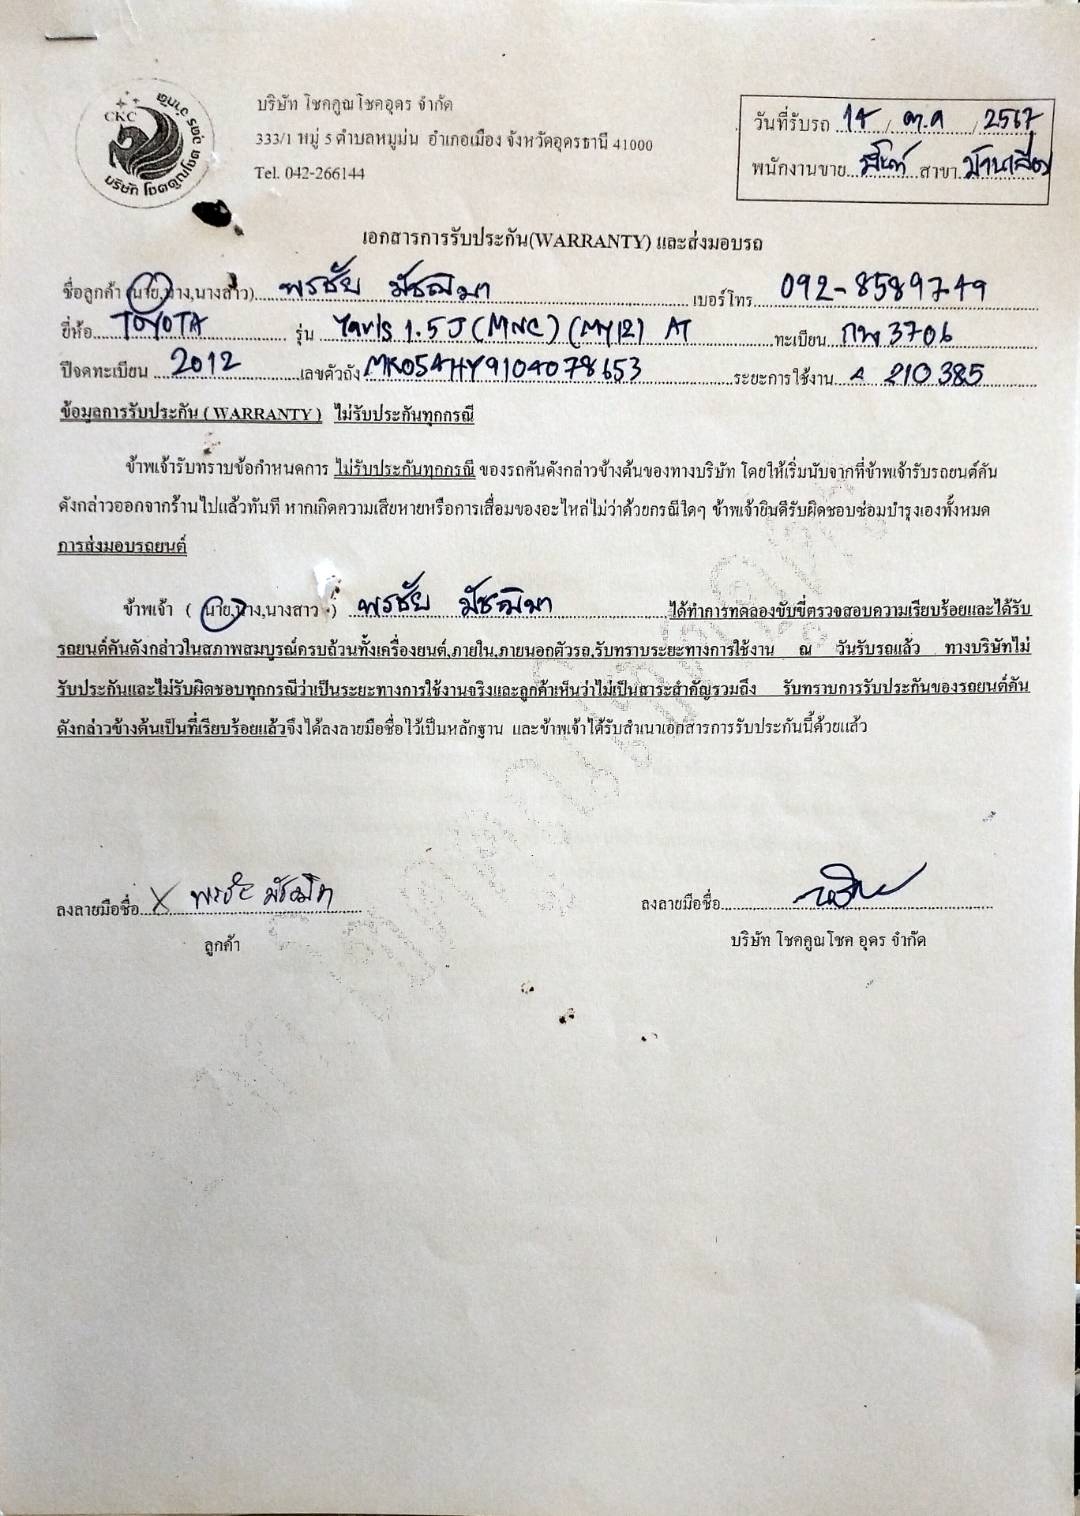 CKC
บริษัท โชคคูณโชคอุดร จำกัด
บริษัท โชคคูณโชคอุดร จำกัด
333/1 หมู่ 5 ตำบลหมูม่น อำเภอเมือง จังหวัดอุดรธานี 41000
Tel. 042-266144
วันที่รับรถ 14 / ต.ค / 2567
พนักงานขาย... สาขา บ้านเลื่อม
เอกสารการรับประกัน(WARRANTY) และส่งมอบรถ
ชื่อลูกค้า (นาย,นาง,นางสาว) พรชัย มัชฌิมา เบอร์โทร 092-8589749
ยี่ห้อ TOYOTA รุ่น Yaris 1.5 J (MNC) (MY12) AT ทะเบียน กพ 3706
ปีจดทะเบียน 2012 เลขตัวถัง MR054HY9104078653 ระยะการใช้งาน A 210385
ข้อมูลการรับประกัน ( WARRANTY ) ไม่รับประกันทุกกรณี
ข้าพเจ้ารับทราบข้อกำหนดการ ไม่รับประกันทุกกรณี ของรถคันดังกล่าวข้างต้นของทางบริษัท โดยให้เริ่มนับจากที่ข้าพเจ้ารับรถยนต์คัน
ดังกล่าวออกจากร้านไปแล้วทันที หากเกิดความเสียหายหรือการเสื่อมของอะไหล่ไม่ว่าด้วยกรณีใดๆ ข้าพเจ้ายินดีรับผิดชอบซ่อมบำรุงเองทั้งหมด
การส่งมอบรถยนต์
ข้าพเจ้า ( นาย,นาง,นางสาว ) พรชัย มัชฌิมา ได้ทำการทดลองขับขี่ตรวจสอบความเรียบร้อยและได้รับ
รถยนต์คันดังกล่าวในสภาพสมบูรณ์ครบถ้วนทั้งเครื่องยนต์,ภายใน,ภายนอกตัวรถ,รับทราบระยะทางการใช้งาน ณ วันรับรถแล้ว ทางบริษัทไม่
รับประกันและไม่รับผิดชอบทุกกรณีว่าเป็นระยะทางการใช้งานจริงและลูกค้าเห็นว่าไม่เป็นสาระสำคัญรวมถึง รับทราบการรับประกันของรถยนต์คัน
ดังกล่าวข้างต้นเป็นที่เรียบร้อยแล้วจึงได้ลงลายมือชื่อไว้เป็นหลักฐาน และข้าพเจ้าได้รับสำเนาเอกสารการรับประกันนี้ด้วยแล้ว
ลงลายมือชื่อ X พรชัย มัชฌิมา
ลงลายมือชื่อ
ลูกค้า
บริษัท โชคคูณโชค อุดร จำกัด